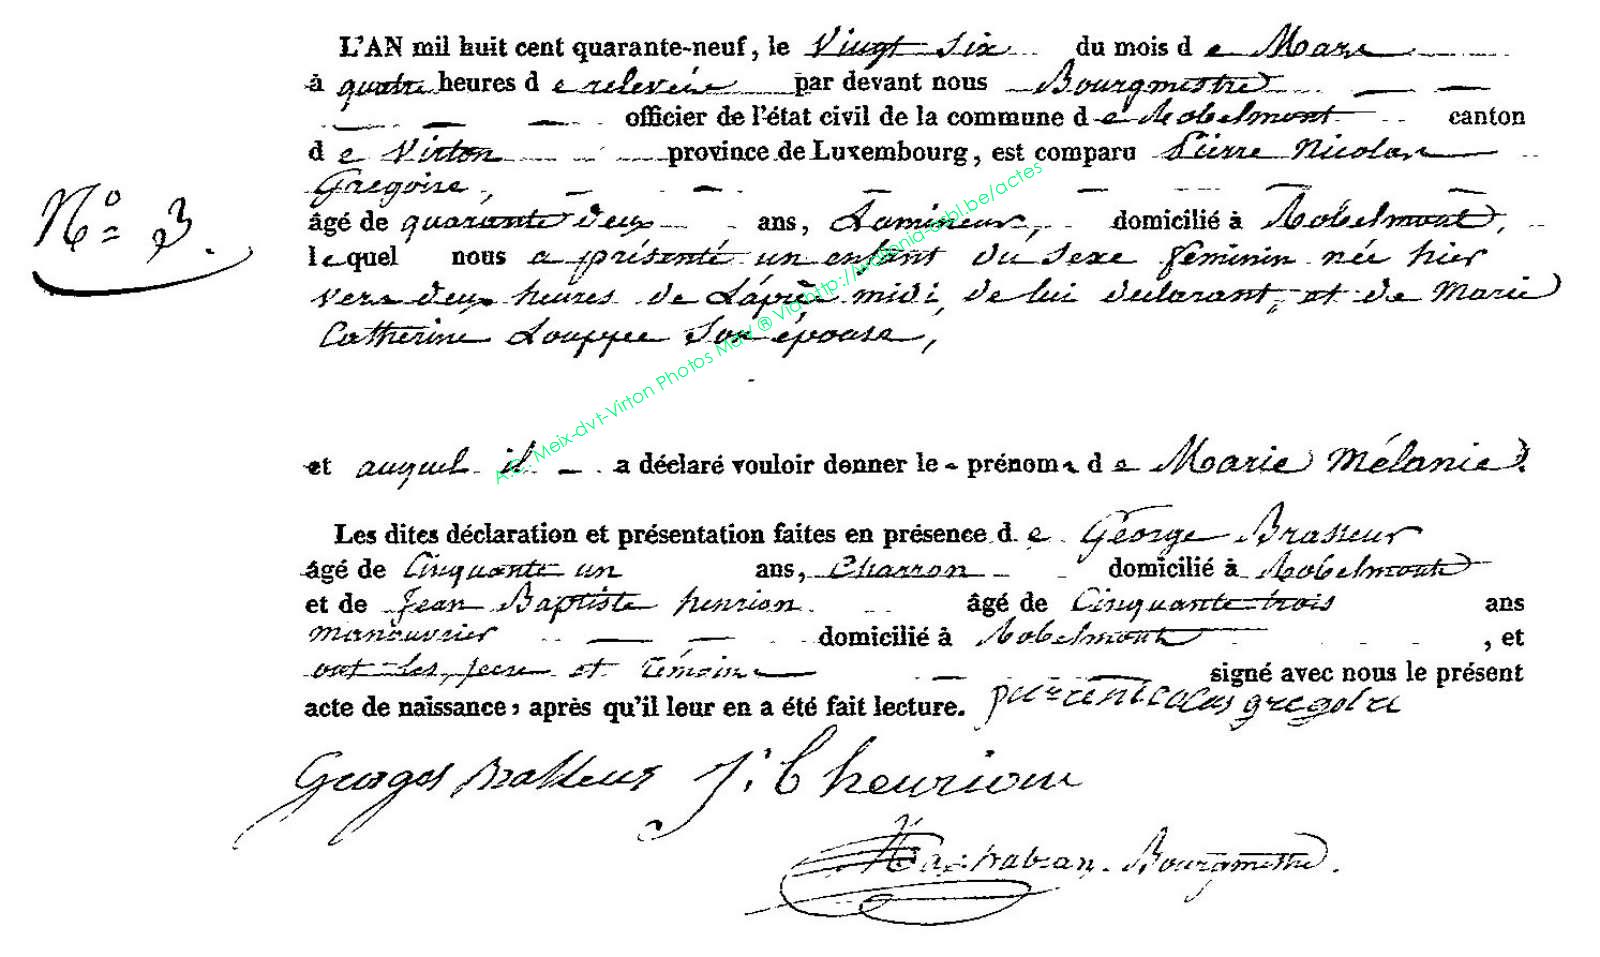 L'AN mil huit cent quarante-neuf, le Vingt Six du mois de Mars
à quatre heures de relevée par devant nous Bourgmestre
officier de l'état civil de la commune de Robelmont canton
de Virton province de Luxembourg, est comparu Pierre Nicolas
Gregoire,
N° 3.
âgé de quarante deux ans, Lamineur, domicilié à Robelmont,
lequel nous a présenté un enfant du sexe féminin née hier
vers deux heures de L'après midi, de lui déclarant, et de Marie
Catherine Louppe Son épouse,
A.C. Meix-dvt-Virton Photos Mary ® Via http://wallonia-asbl.be/actes
et auquel il a déclaré vouloir donner le prénoms de Marie Mélanie.
Les dites déclaration et présentation faites en présence de George Brasseur
âgé de Cinquante un ans, Charron domicilié à Robelmont
et de Jean Baptiste henrion âgé de Cinquante trois ans
manœuvrier domicilié à Robelmont, et
ont les père et témoins signé avec nous le présent
acte de naissance, après qu'il leur en a été fait lecture. pierre nicolas gregoire
Georges Brasseur J. B henrion
Bourgmestre.